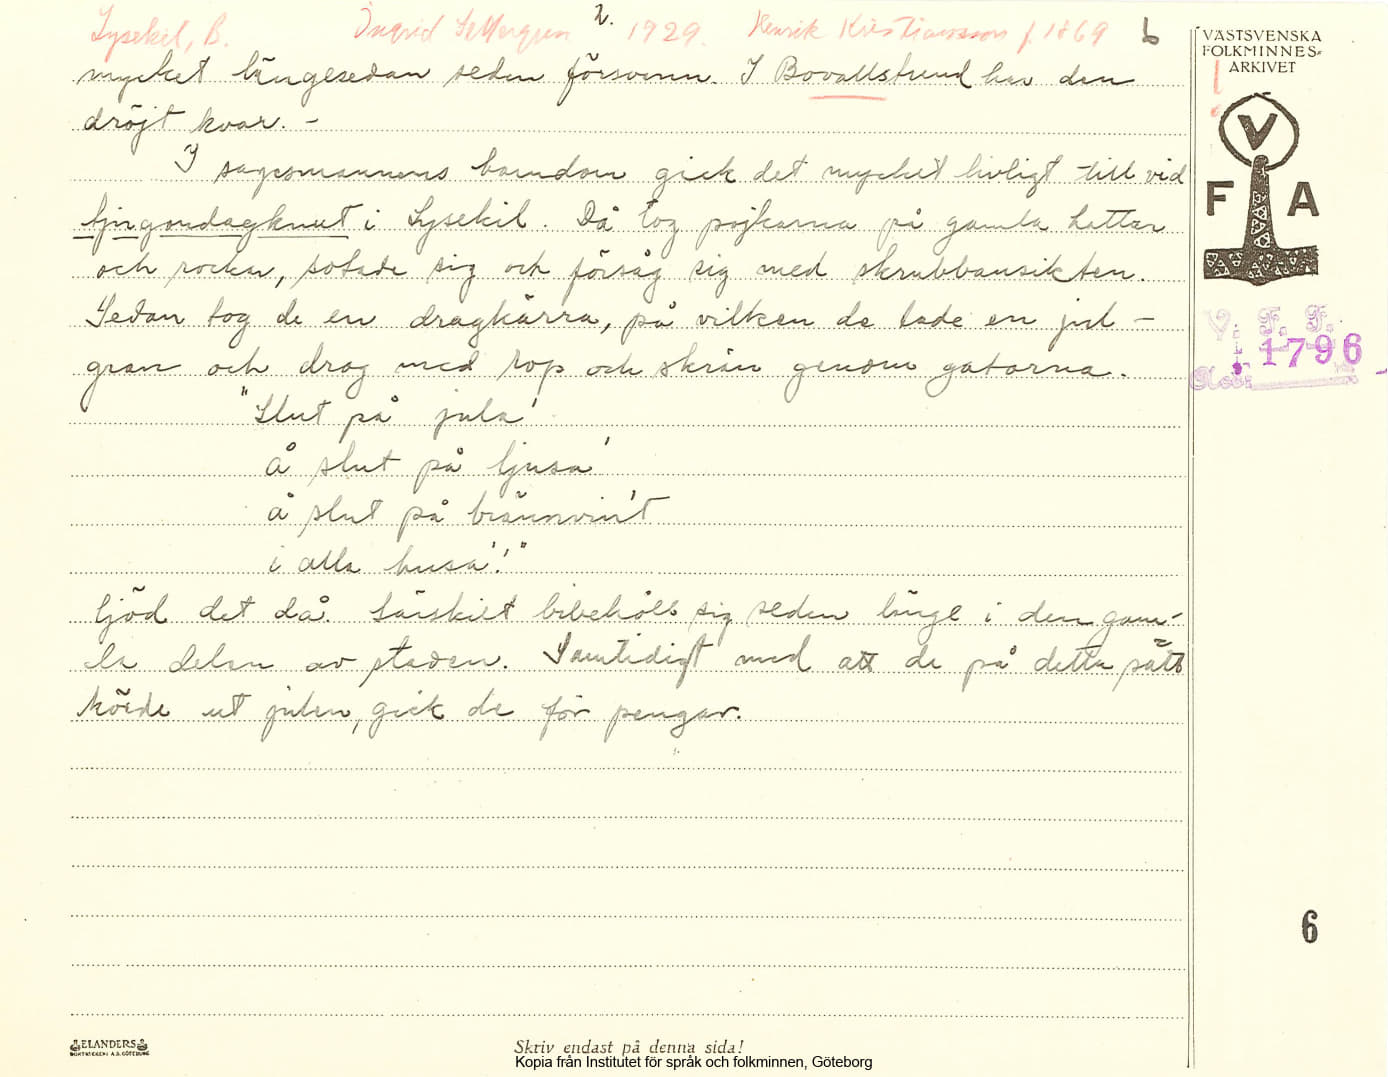 Lysekil, B. Ingrid Settergren 2. 1929. Henrik Kristiansson f. 1869 6
mycket längesedan seden försvann. I Bovallstrand har den
dröjt kvar. –
I sagesmannens barndom gick det mycket livligt till vid
tjugondagknut i Lysekil. Då tog pojkarna på gamla hattar
och rockar, sotade sig och försåg sig med skrubbansikten.
Sedan tog de en dragkärra, på vilken de lade en jul-
gran och drog med rop och skrän genom gatorna.
"Slut på jula'
å slut på ljusa'
å slut på brännvin't
i alla husa'!"
ljöd det då. Särskilt bibehöll sig seden länge i den gam-
la delen av staden. Samtidigt med att de på detta sätt
körde ut julen, gick de för pengar.
VÄSTSVENSKA
FOLKMINNES-
ARKIVET
V
F A
V. F. F.
1796
6
ELANDERS
BOKTRYCKERI A.B. GÖTEBORG
Skriv endast på denna sida!
Kopia från Institutet för språk och folkminnen, Göteborg